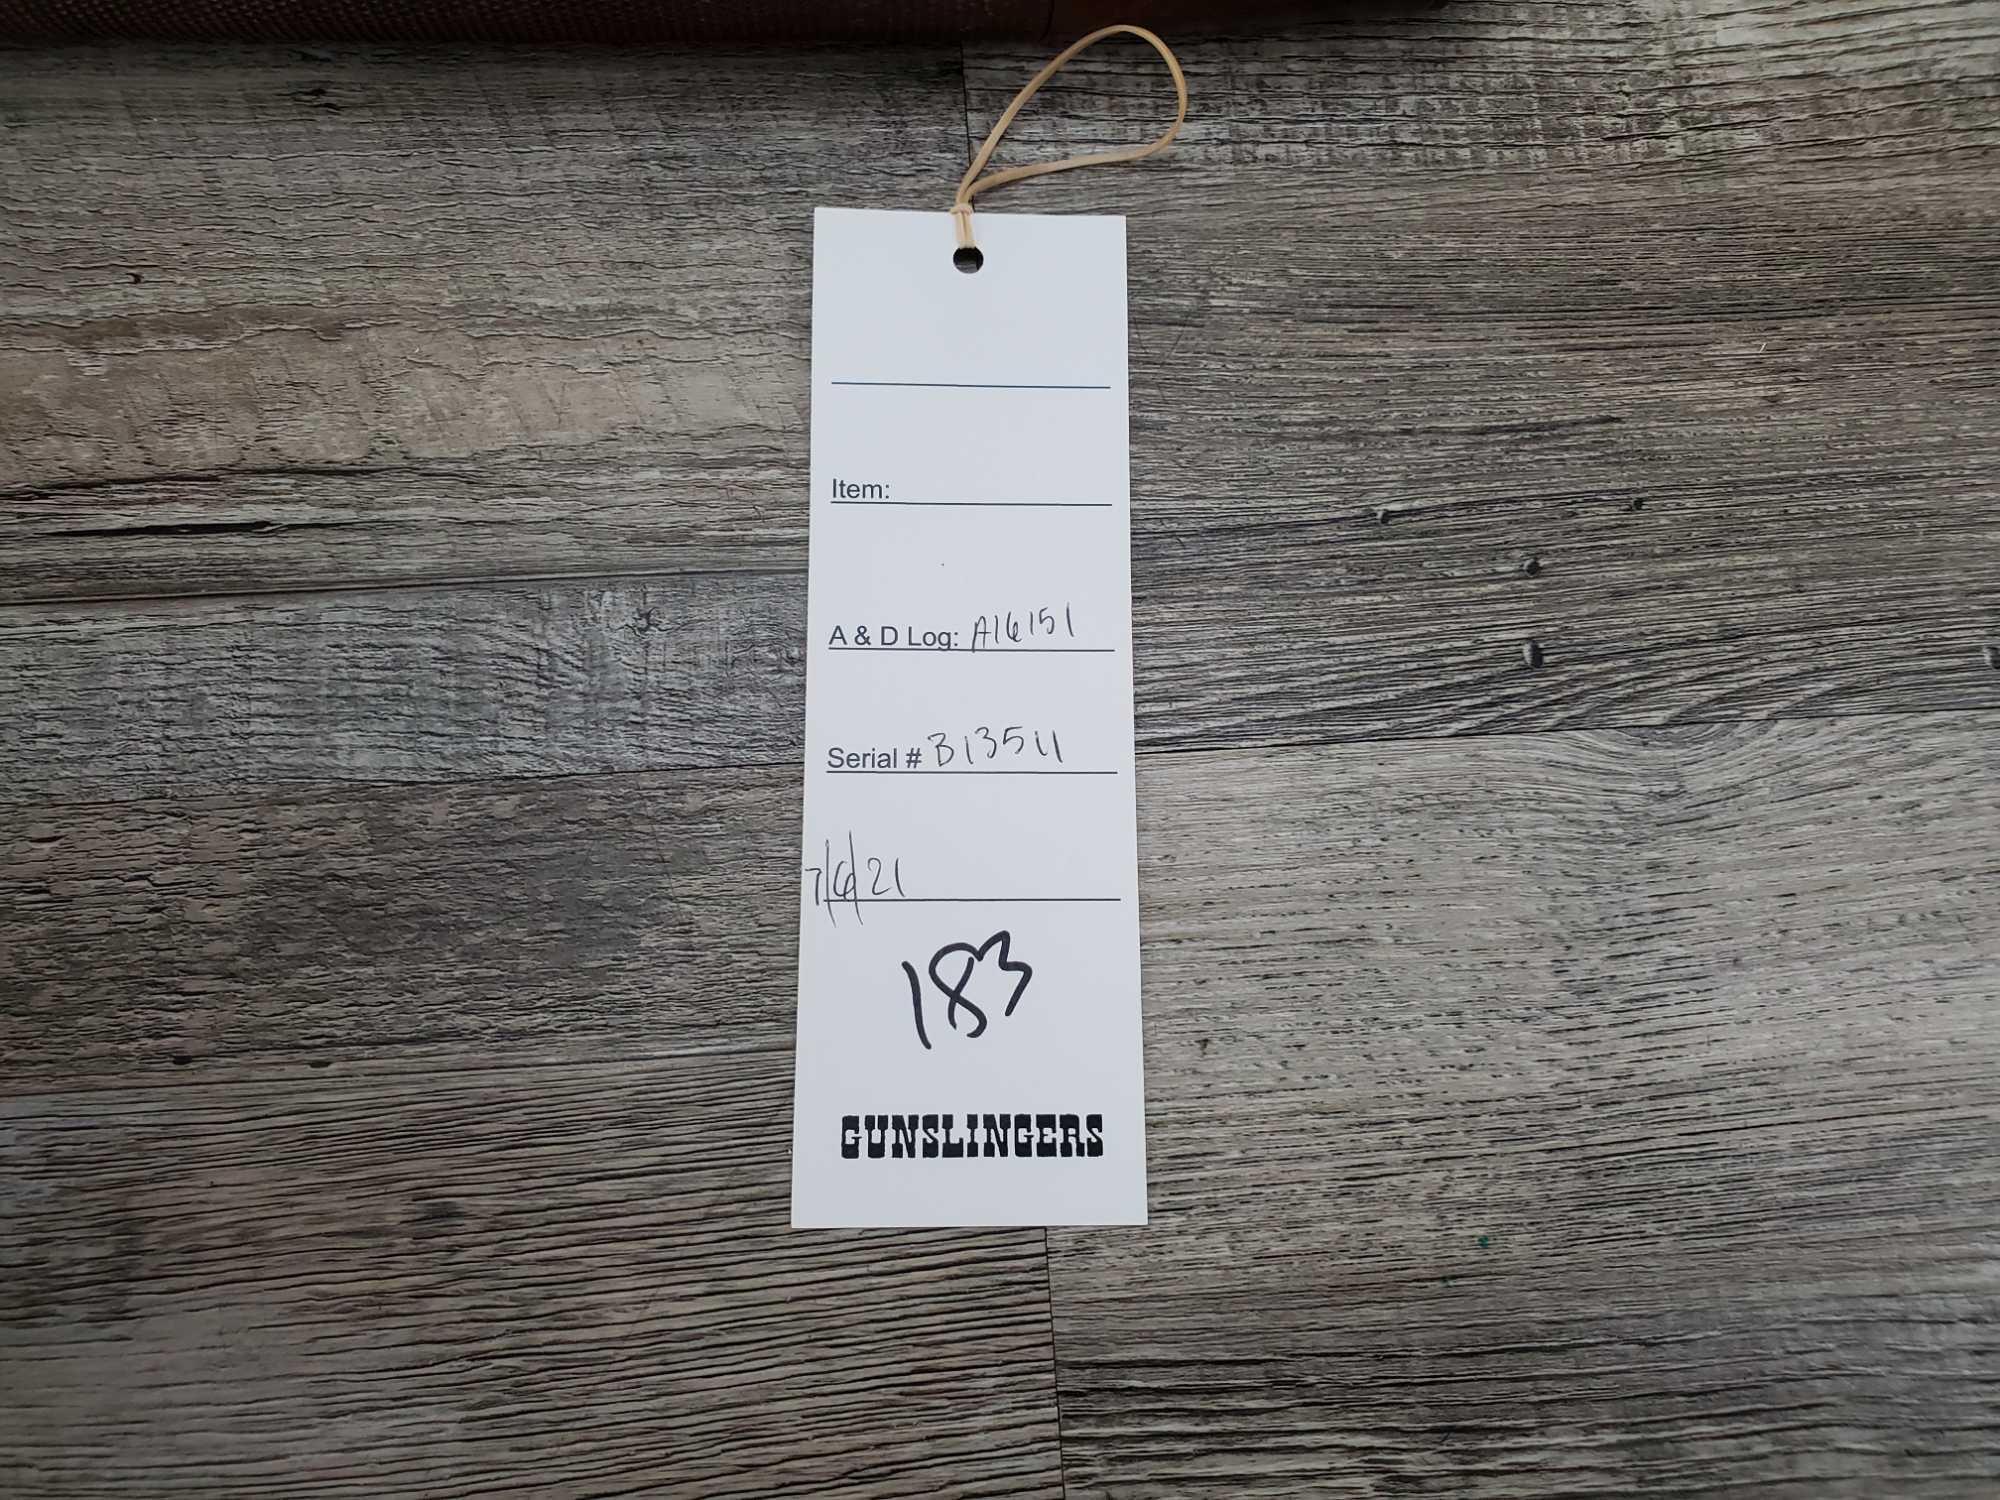 Item:
A & D Log: A16151
Serial # B13511
7/6/21
183
GUNSLINGERS